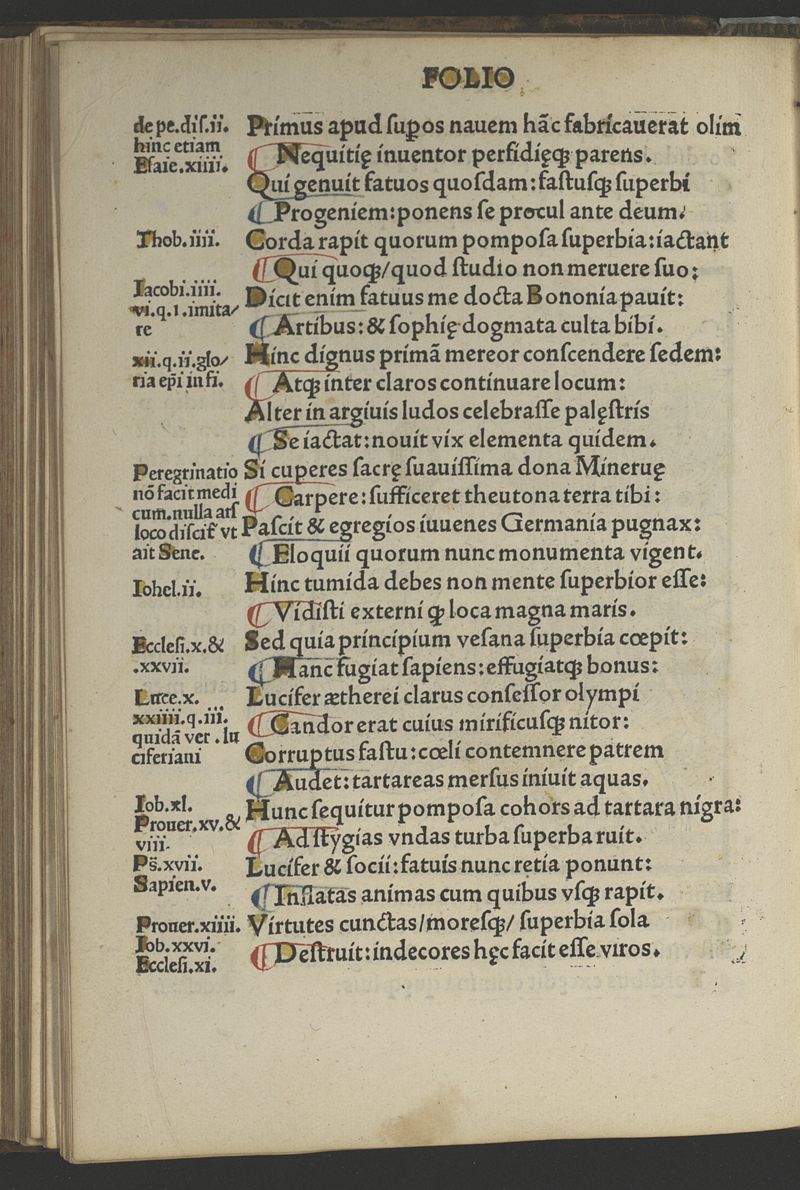 FOLIO
de pe.diſ.ii.
hinc etiam
Eſaie.xiiii.
Thob.iiii.
Iacobi.iiii.
vi.q.i.imita/
re
xii.q.ii.glo/
ria ep̄i in fi.
Peregrinatio
nō facit medi
cum.nulla arſ
loco diſcit᷑ vt
ait Sene.
Iohel.ii.
Eccleſi.x.&
.xxvii.
Luce.x.
xxiiii.q.iii.
quidā ver.lu
ciferiani
Iob.xl.
Prouer.xv.&
viii.
Ps̄.xvii.
Sapien.v.
Prouer.xiiii.
Iob.xxvi.
Eccleſi.xi.
Primus apud ſuꝑos nauem hāc fabricauerat olim
⸿ Nequitię inuentor perfidięqꝫ parens.
Qui genuit fatuos quoſdam: faſtuſqꝫ ſuperbi
⸿ Progeniem: ponens ſe procul ante deum.
Corda rapit quorum pompoſa ſuperbia: iactant
⸿ Qui quoqꝫ/quod ſtudio non meruere ſuo:
Dicit enim fatuus me docta Bononia pauit:
⸿ Artibus: & ſophię dogmata culta bibi.
Hinc dignus primā mereor conſcendere ſedem:
⸿ Atqꝫ inter claros continuare locum:
Alter in argiuis ludos celebraſſe palęſtris
⸿ Se iactat: nouit vix elementa quidem.
Si cuperes ſacrę ſuauiſſima dona Mineruę
⸿ Carpere: ſufficeret theutona terra tibi:
Paſcit & egregios iuuenes Germania pugnax:
⸿ Eloquii quorum nunc monumenta vigent.
Hinc tumida debes non mente ſuperbior eſſe:
⸿ Vidiſti externi qꝫ loca magna maris.
Sed quia principium veſana ſuperbia cœpit:
⸿ Hanc fugiat ſapiens: effugiatqꝫ bonus:
Lucifer ætherei clarus conſeſſor olympi
⸿ Candor erat cuius mirificuſqꝫ nitor:
Corruptus faſtu: cœli contemnere patrem
⸿ Audet: tartareas merſus iniuit aquas.
Hunc ſequitur pompoſa cohors ad tartara nigra:
⸿ Ad ſtygias vndas turba ſuperba ruit.
Lucifer & ſocii: fatuis nunc retia ponunt:
⸿ Inflatas animas cum quibus vſqꝫ rapit.
Virtutes cunctas/moreſqꝫ/ ſuperbia ſola
⸿ Deſtruit: indecores hęc facit eſſe viros.